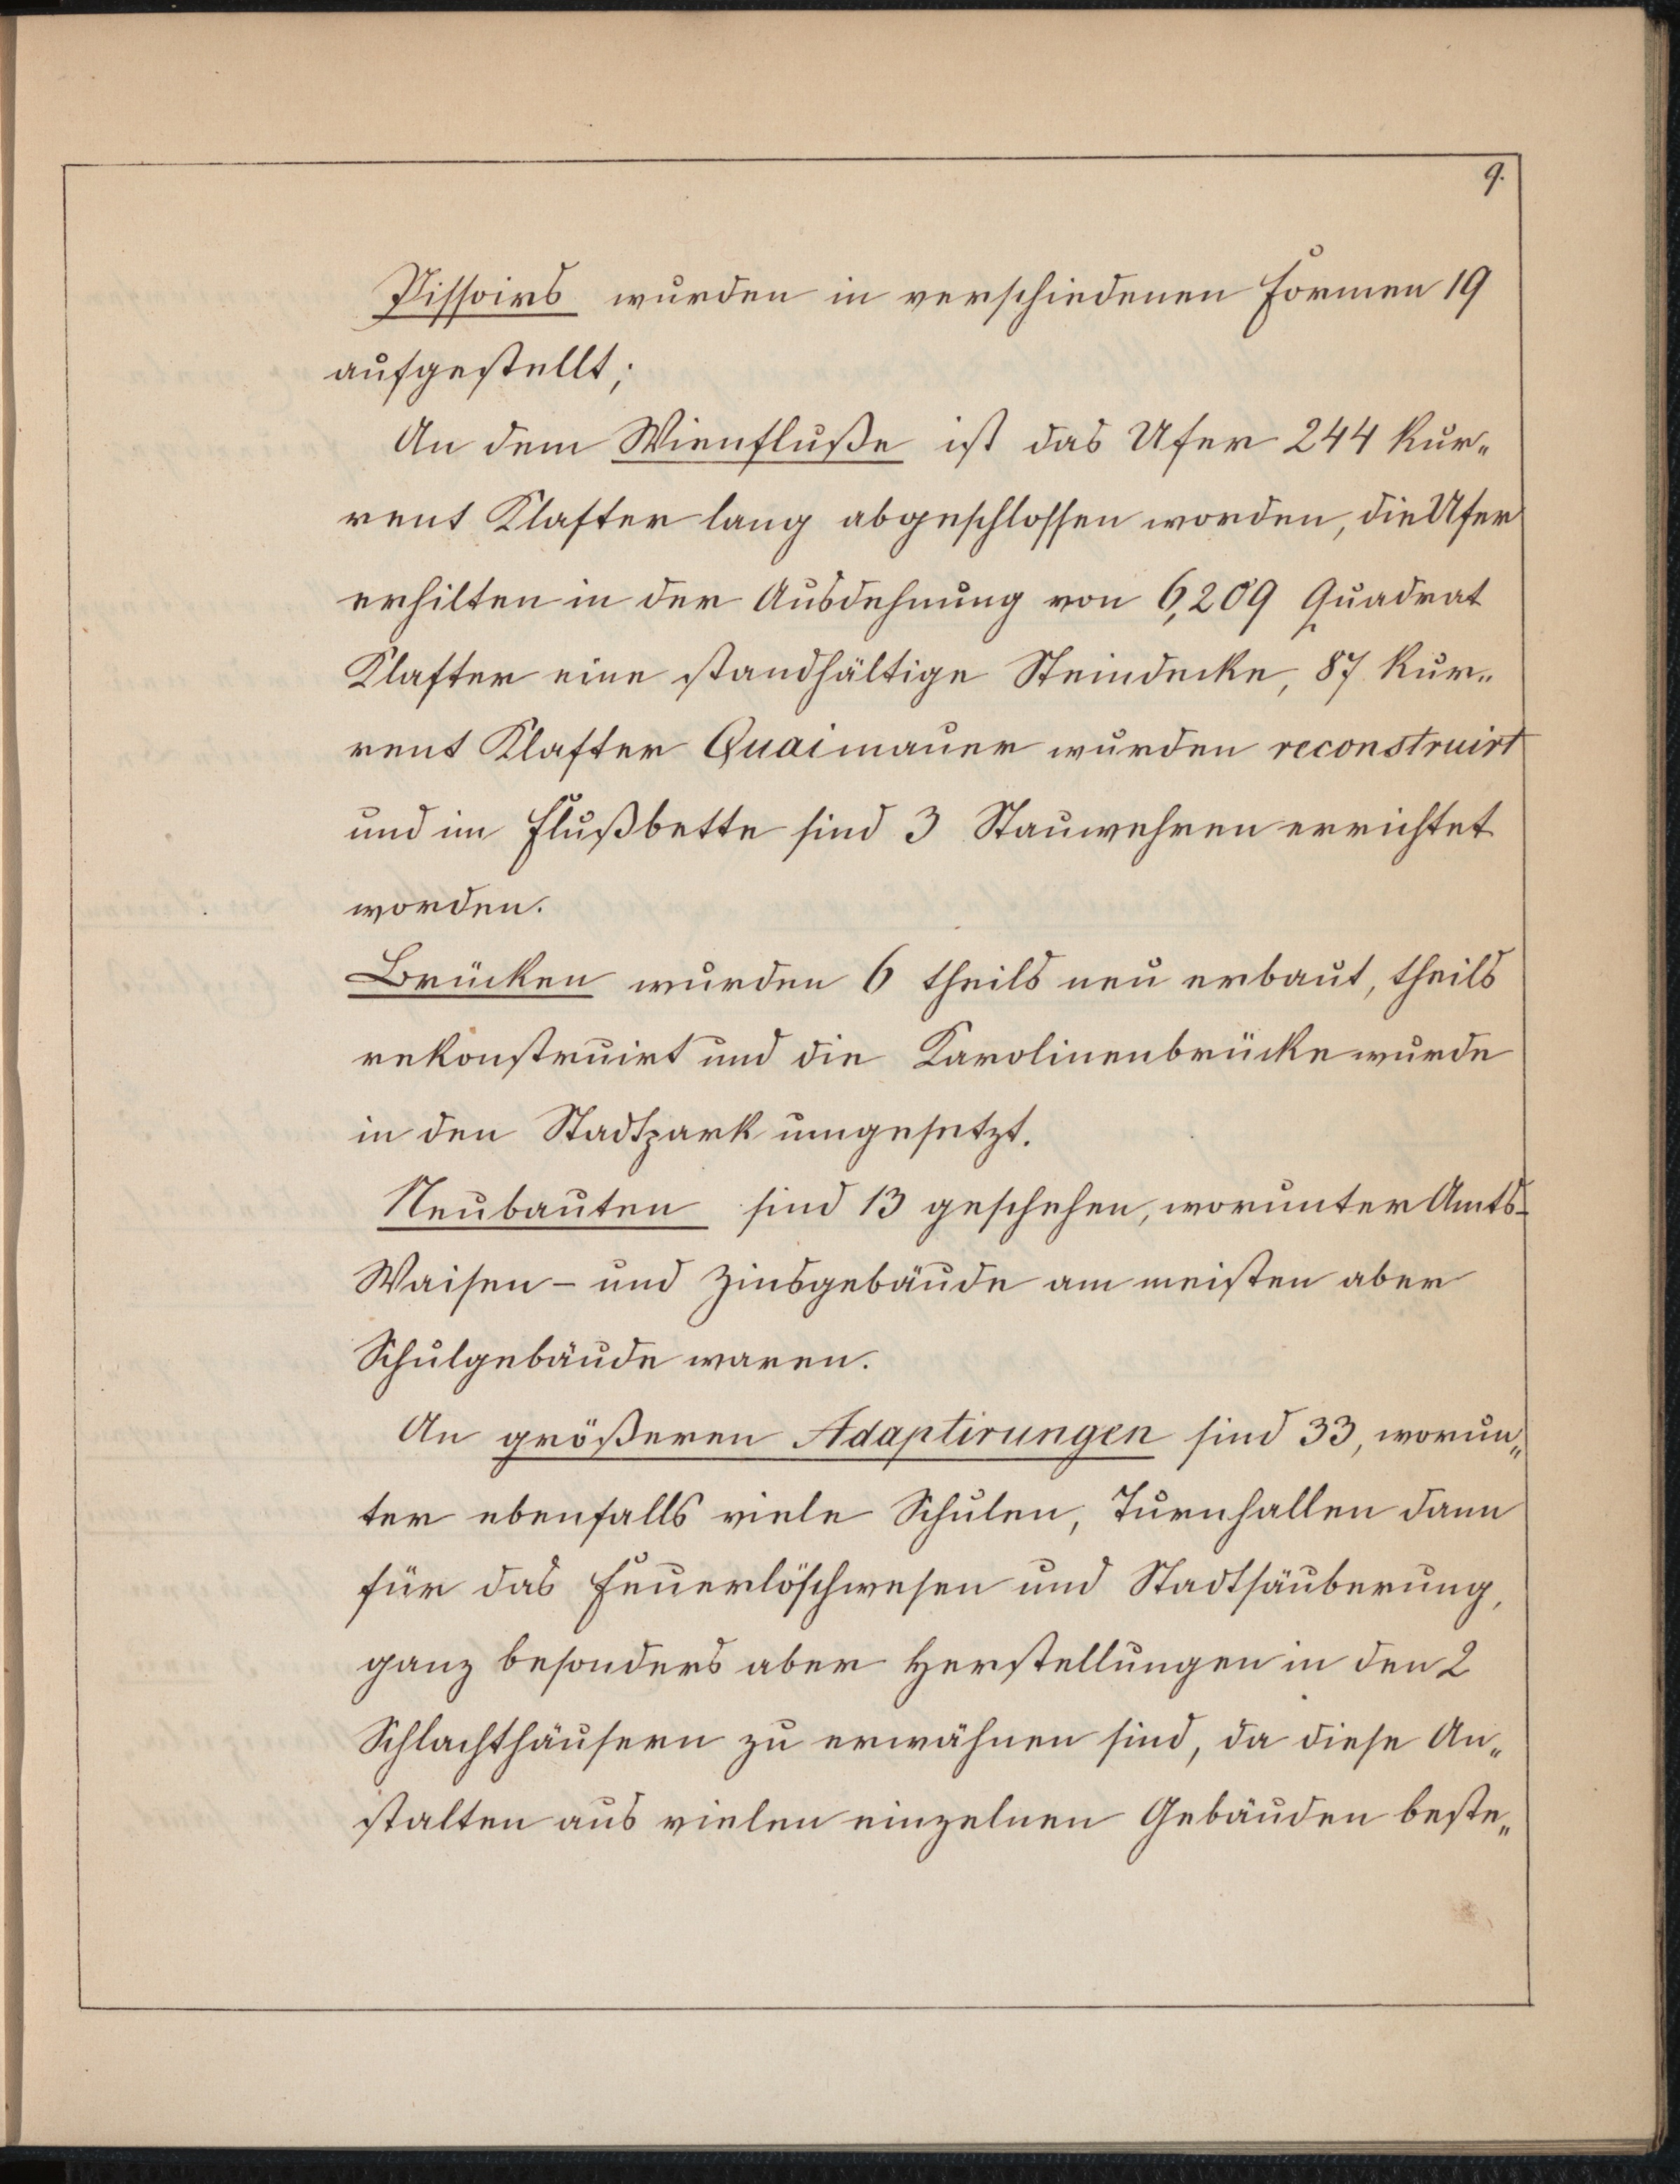 9.
Pissoirs wurden in verschiedenen Formen 19
aufgestellt;
An dem Wienfluße ist das Ufer 244 Kur„
rent Klafter lang abgeschlossen worden, die Ufer
erhilten in der Ausdehnung von 6,209 Quadrat
Klafter eine standhältige Steindecke, 87 Kur„
rent Klafter Quaimauer wurden reconstruirt
und im Flußbette sind 3 Stauwehren errichtet
worden.
Brücken wurden 6 theils neu erbaut, theils
rekonstruirt und die Karolinenbrücke wurde
in den Stadtpark umgesetzt.
Neubauten sind 13 geschehen, worunter Amts-
Waisen- und Zinsgebäude am meisten aber
Schulgebäude waren.
An größeren Adaptirungen sind 33, worun„
ter ebenfalls viele Schulen, Turnhallen dann
für das Feuerlöschwesen und Stadtsäuberung,
ganz besonders aber Herstellungen in den 2
Schlachthäusern zu erwähnen sind, da diese An„
stalten aus vielen einzelnen Gebäuden beste„